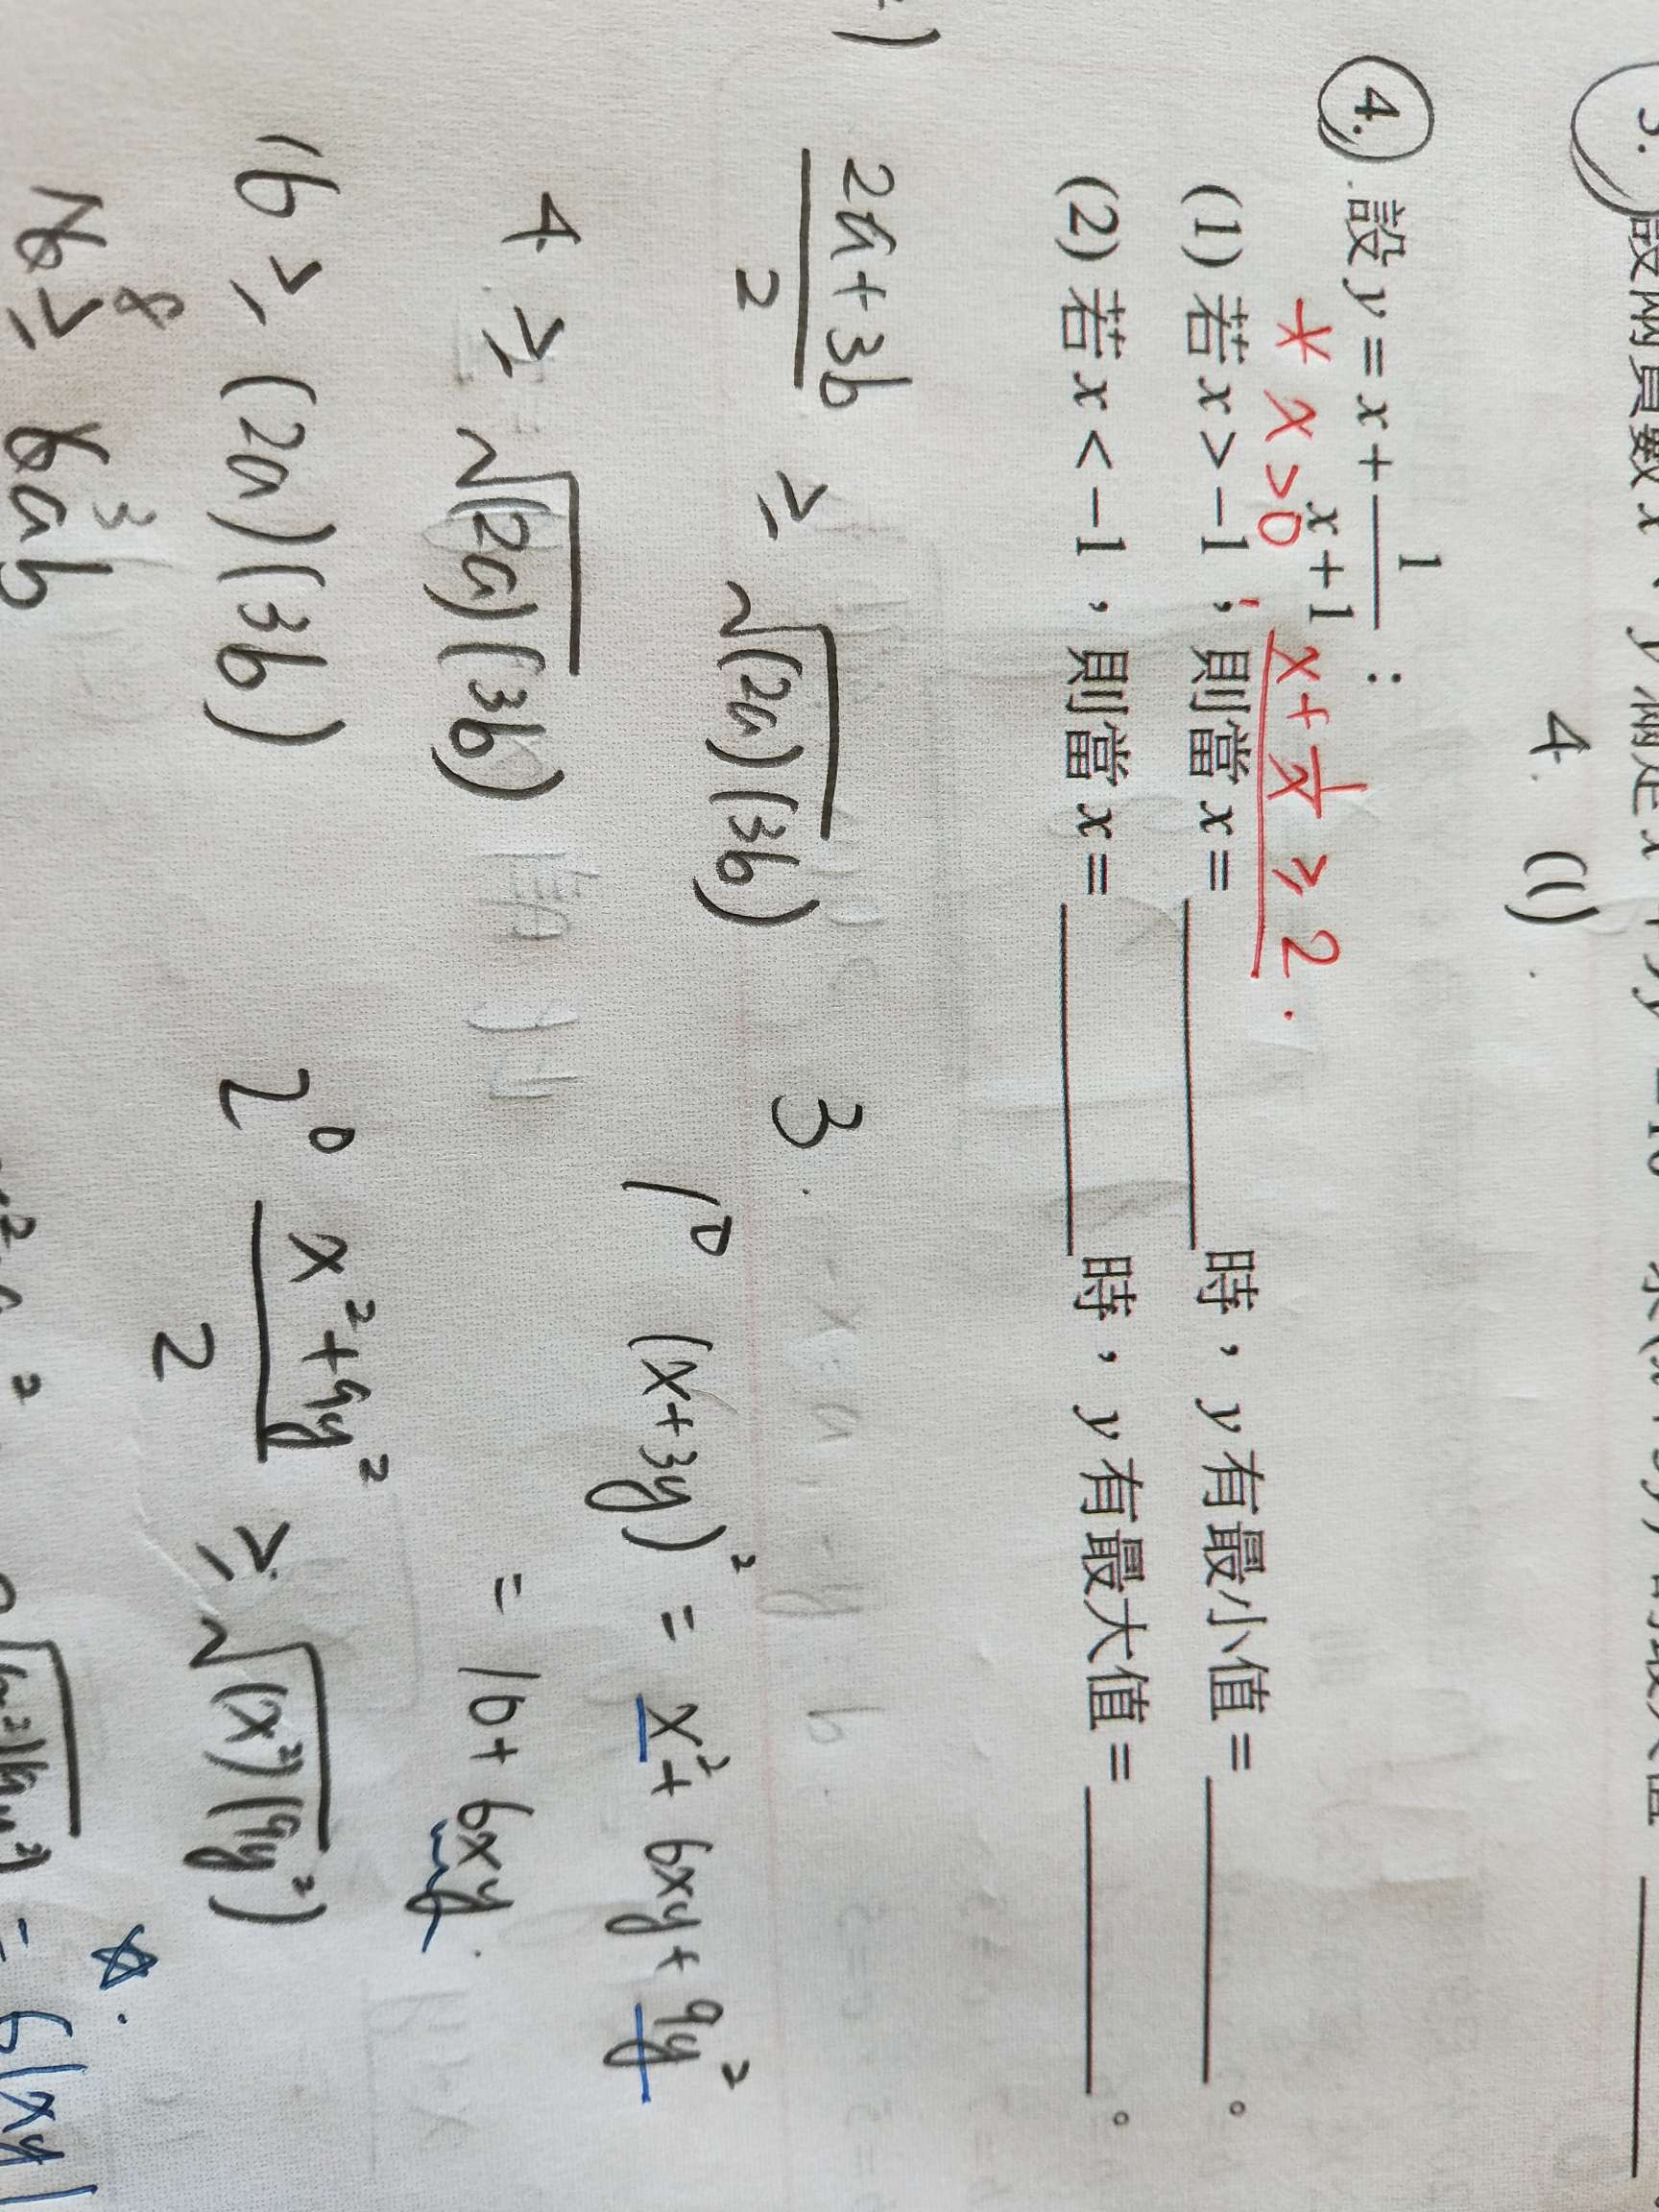 3. 設兩實數 x、y 滿足 x
4. (1)
4. 設 y = x + 1/(x+1) :
* x>0, x + 1/x ≥ 2.
(1) 若 x > -1,則當 x = ______ 時,y 有最小值 = ______。
(2) 若 x < -1,則當 x = ______ 時,y 有最大值 = ______。
(2a+3b)/2 ≥ √(2a)(3b)
4 ≥ √(2a)(3b)
16 ≥ (2a)(3b)
16 ≥ 6ab
8 3
3.
1° (x+3y)² = x² + 6xy + 9y²
= 16 + 6xy.
2° (x²+9y²)/2 ≥ √(x²)(9y²)
☆: = 6|xy|